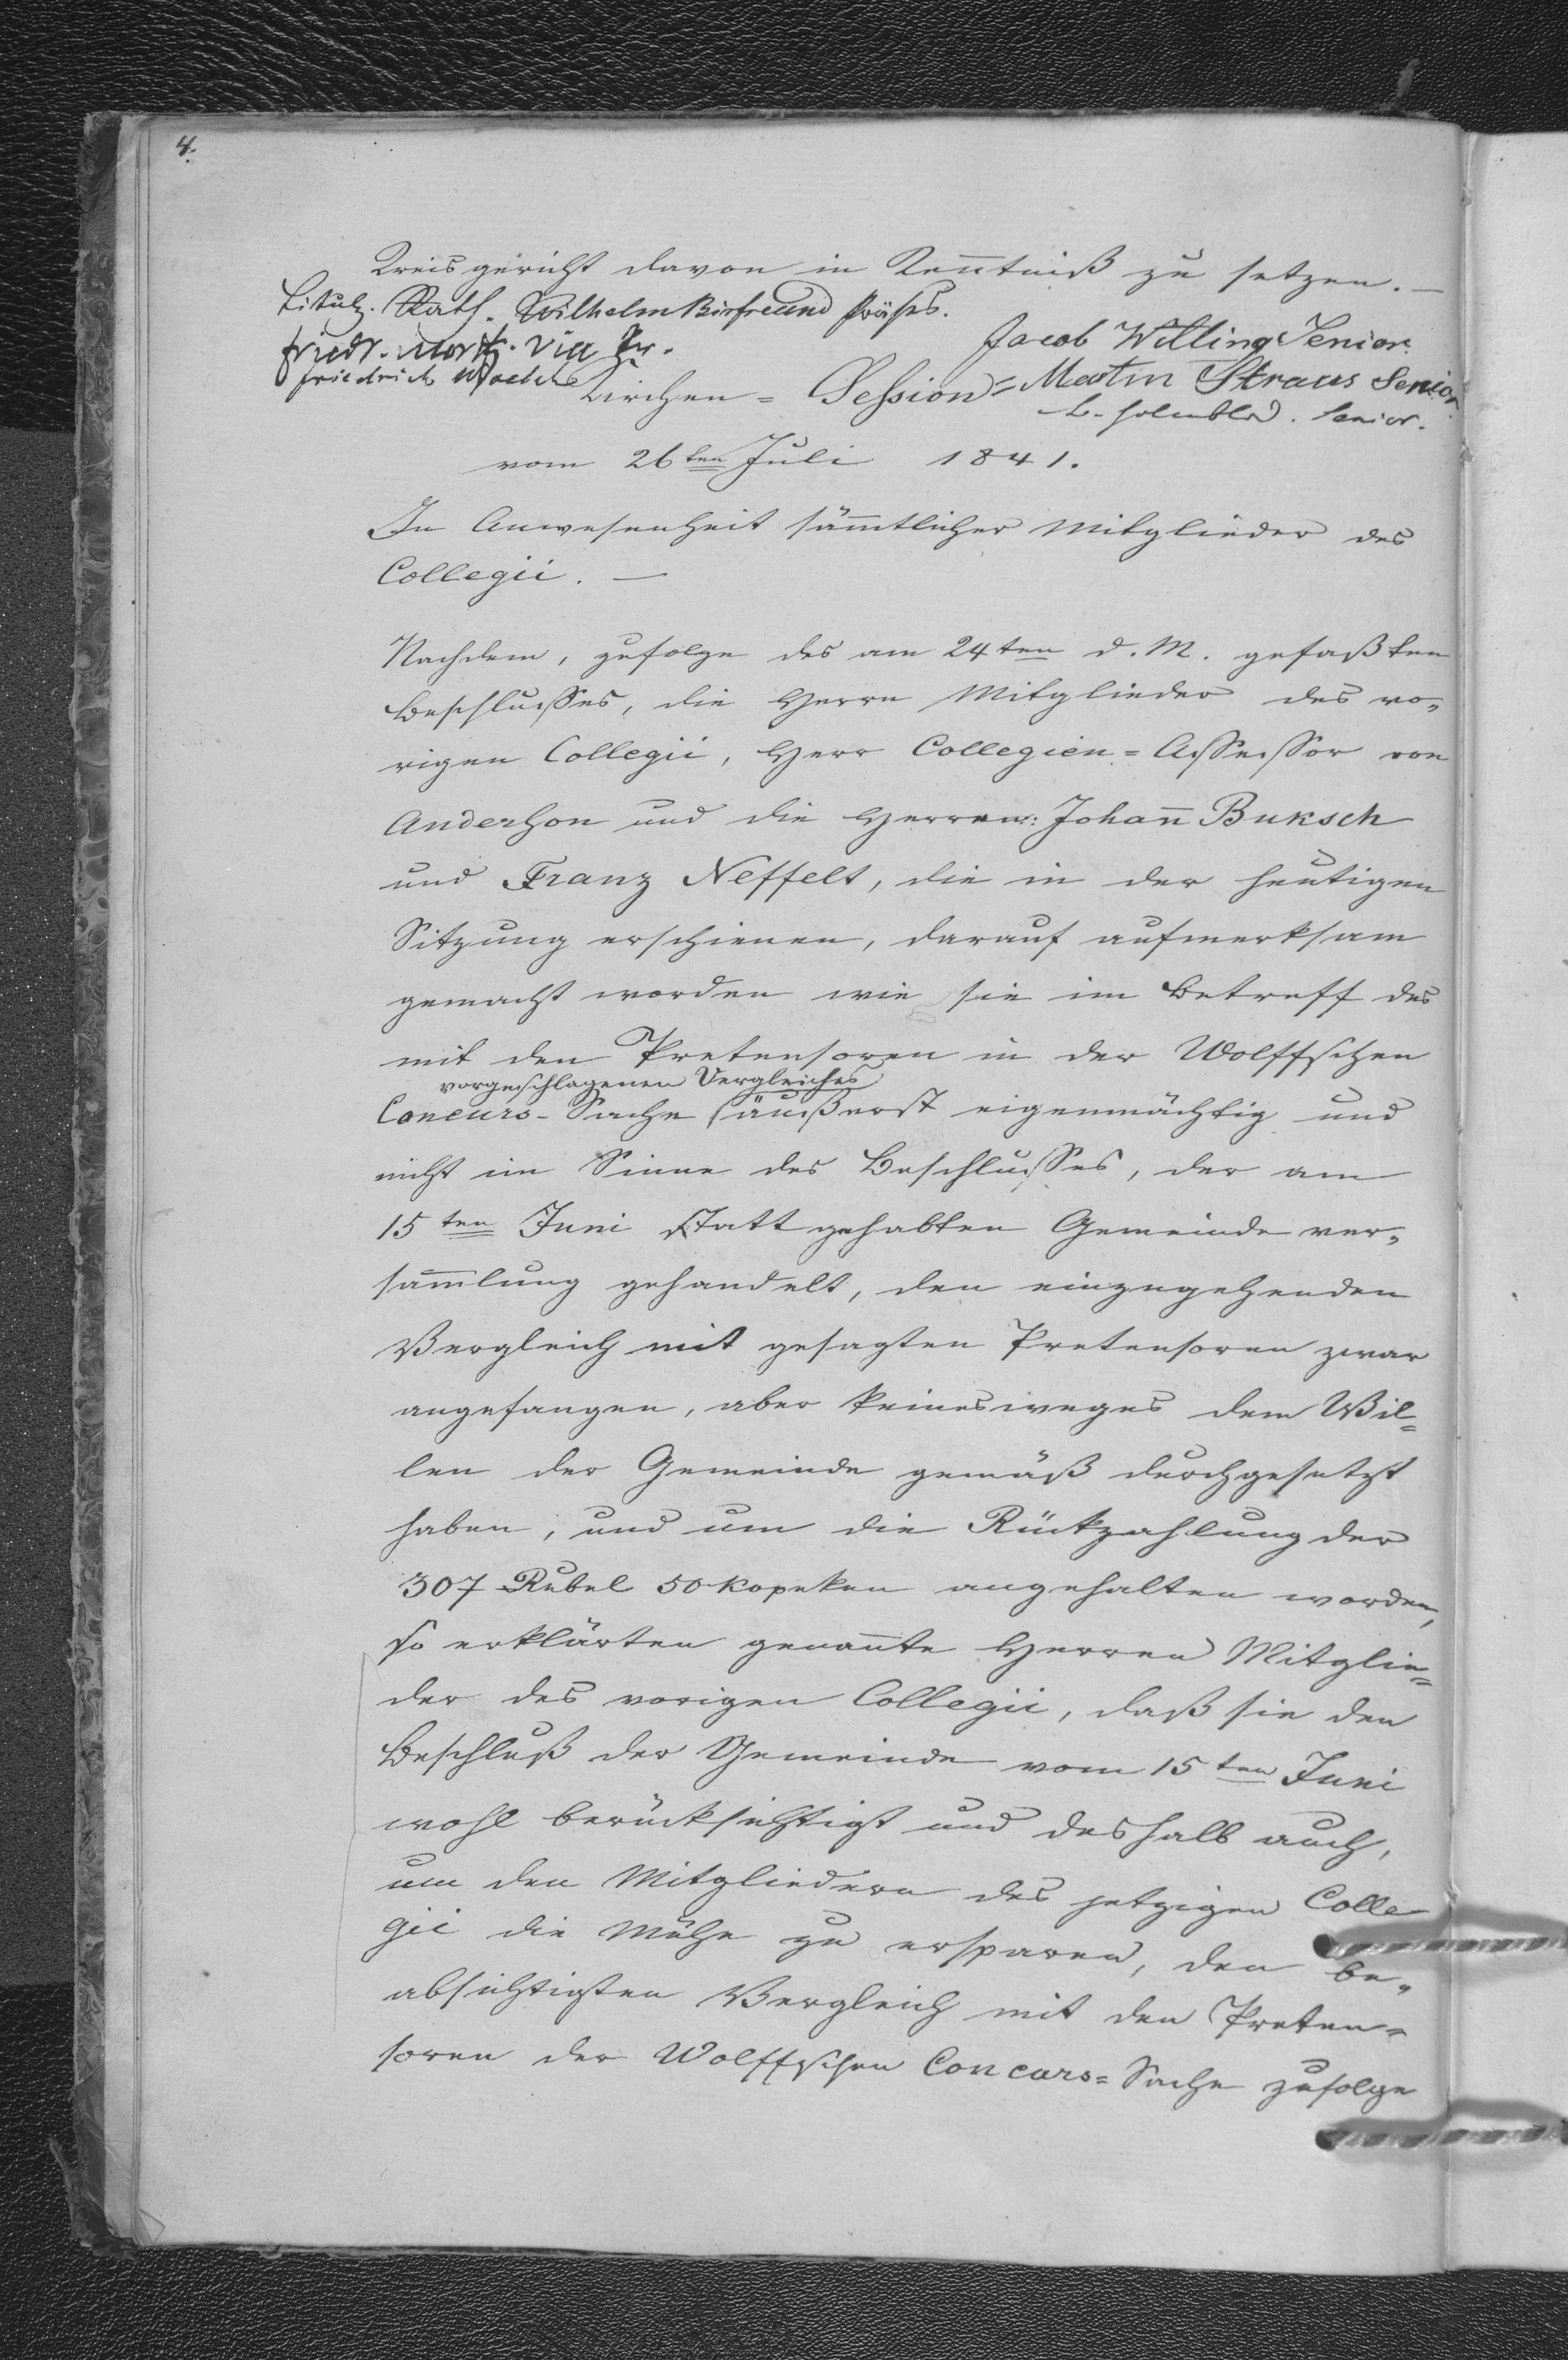 4.
Kreisgericht davon in Kenntniß zu setzen. —
Titulr. Rath. Wilhelm Birfreund Präses.
Jacob Willing Senior.
Friedr. Moritz
Friedrich
Martin Straus Senior.
Senior.
Kirchen = Session =
vom 26ten Juli 1841.
In Anwesenheit säm̄tlicher Mitglieder des
Collegii. —
Nachdem, zufolge des am 24ten d. M. gefaßten
Beschlusses, die Herrn Mitglieder des vo„
rigen Collegii, Herr Collegien=Assessor von
Anderson und die Herren: Johan̄ Buksch
und Franz Neffelt, die in der heutigen
Sitzung erschienen, darauf aufmerksam
gemacht worden wie sie im Betreff des
mit den Pretensoren in der Wolffschen
vorgeschlagenen Vergleiches
Concurs-Sache äußerst eigenmächtig und
nicht im Sinne des Beschlusses, der am
15ten Juni statt gehabten Gemeinde ver„
sam̄lung gehandelt, den einzugehenden
Vergleich mit gesagten Pretensoren zwar
angefangen, aber keinesweges dem Wil=
len der Gemeinde gemäß durchgesetzt
haben, und um die Rückzahlung der
307 Rubel 50 Kopeken angehalten worden,
so erklärten genan̄te Herren Mitglie=
der des vorigen Collegii, daß sie den
Beschluß der Gemeinde vom 15ten Juni
wohl berücksichtigt und deshalb auch,
um den Mitgliedern des jetzigen Colle-
gii die Mühe zu ersparen, den be„
absichtigten Vergleich mit den Preten=
soren der Wolffschen Concurs=Sache zufolge